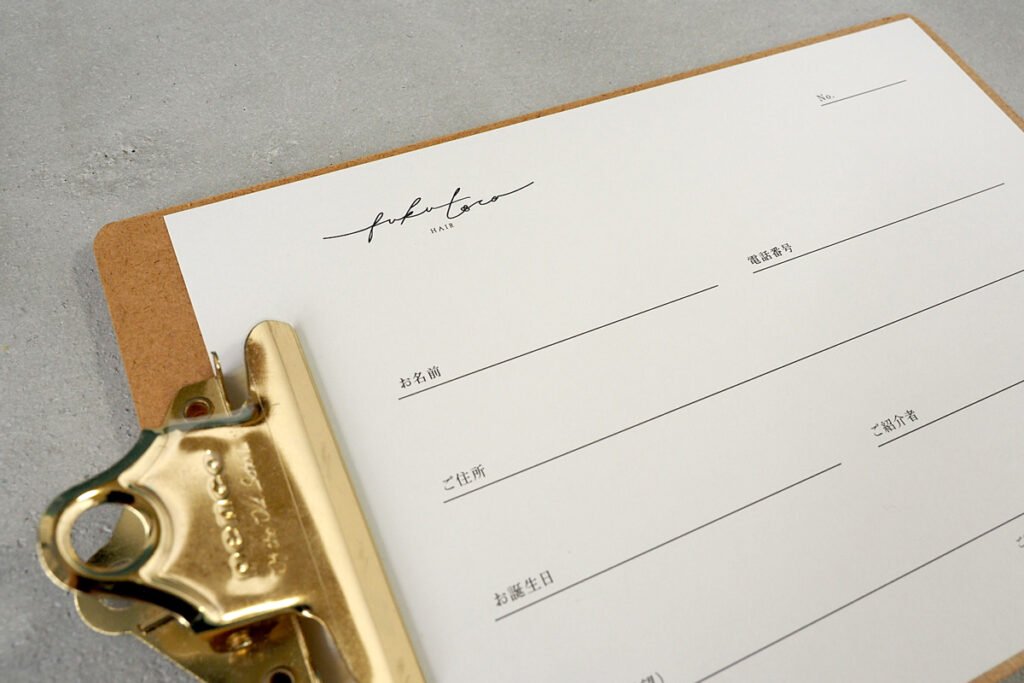 No.
fukutoco
HAIR
電話番号
お名前
ご住所
ご紹介者
お誕生日
ご
望)